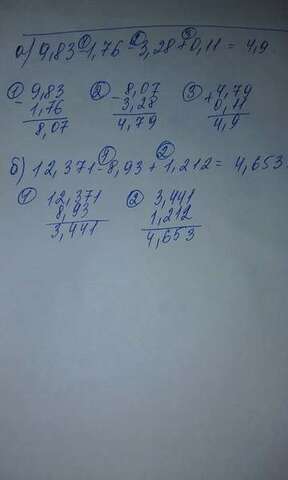 а) 9,83 ① - 1,76 ② - 3,28 ③ + 0,11 = 4,9
① - 9,83 ② - 8,07 ③ + 4,79
1,76 3,28 0,11
8,07 4,79 4,9
б) 12,371 ① - 8,93 + ② 1,212 = 4,653
① 12,371 ② 3,441
8,93 1,212
3,441 4,653